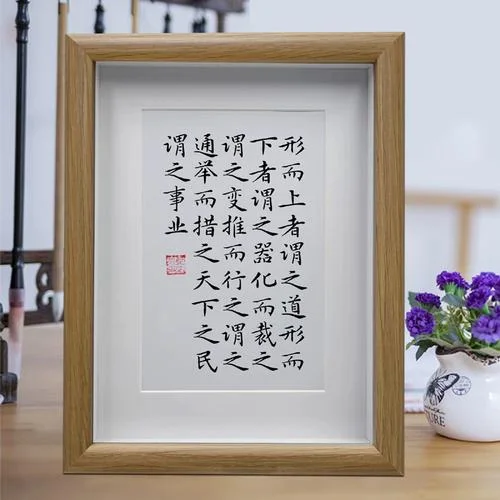 形而上者谓之道形而
下者谓之器化而裁之
谓之变推而行之谓之
通举而措之天下之民
谓之事业